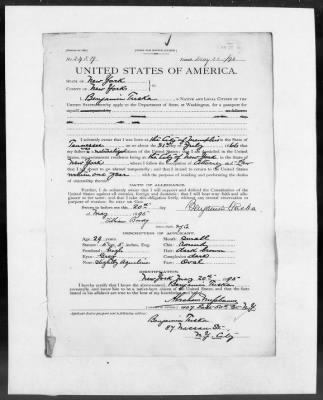 UNITED STATES OF AMERICA.
STATE OF New York
COUNTY OF New York
I, Benjamin Tuska, A NATIVE AND LOYAL CITIZEN OF THE
UNITED STATES, hereby apply to the Department of State, at Washington, for a passport for
myself
I solemnly swear that I was born at the City of Memphis, in the State of
Tennessee, on or about the 31st day of July,
my father is a naturalized citizen of the United States; that I am domiciled in the United
States, my permanent residence being at the City of New York, in the State of
New York, where I follow the occupation of Attorney at Law
that I am about to go abroad temporarily; and that I intend to return to the United States
within one year, with the purpose of residing and performing the duties
of citizenship therein.
OATH OF ALLEGIANCE.
Further, I do solemnly swear that I will support and defend the Constitution of the
United States against all enemies, foreign and domestic; that I will bear true faith and allegiance
to the same; and that I take this obligation freely, without any mental reservation or
purpose of evasion: So HELP ME GOD.
Sworn to before me this 20th day
of May, 1895
Benjamin Tuska
DESCRIPTION OF APPLICANT.
Age: 28 years.
Mouth: Small
Stature: 5 feet, 5 inches, Eng.
Chin:
Forehead: High
Hair: dark brown
Eyes:
Complexion: dark
Nose: Slightly Aquiline
Face: Oval
IDENTIFICATION.
New York, May 20th 1895
I hereby certify that I know the above-named Benjamin Tuska
personally, and know him to be a native-born citizen of the United States, and that the facts
stated in his affidavit are true to the best of my knowledge and belief.
Abraham
Applicant desires passport sent to following address:
Benjamin Tuska
87 Nassau St.
N.Y. City